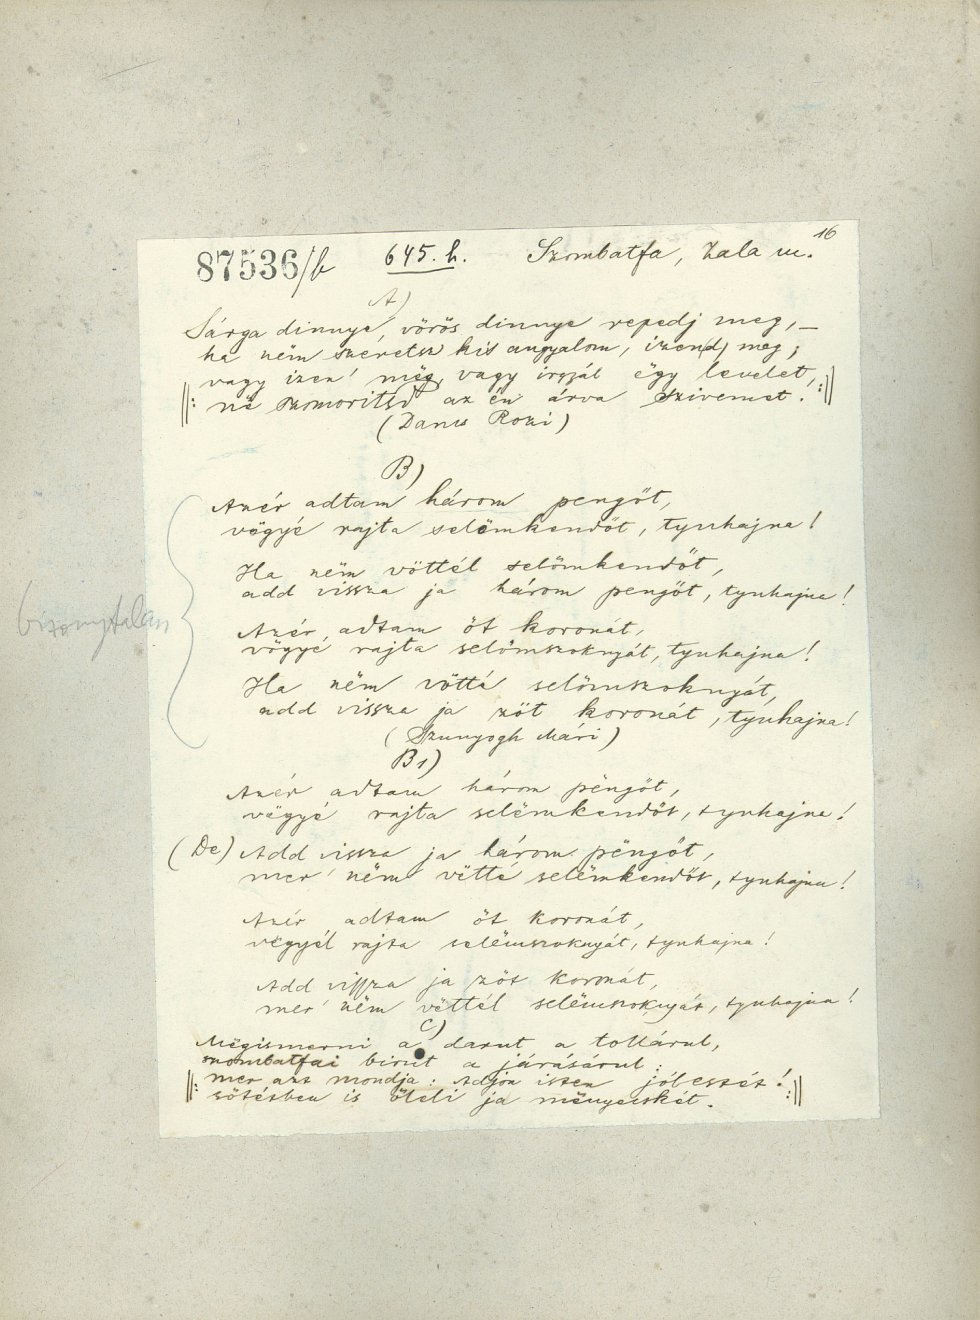 16
87536/b 645. h. Szombatfa, Zala m.
A)
Sárga dinnye, vörös dinnye repedj meg, –
ha nëm szeretsz kis angyalom, izend meg;
vagy izen' mëg, vagy irgyál ëgy levelet,
||: në szomoritsd az én árva szivemet! :||
(Danes Rozi)
B)
Azér adtam három pengőt,
vögyé rajta selömkendőt, tyuhajna!
Ha nëm vöttél selömkendőt,
add vissza ja három pengőt, tyuhajna!
Azér adtam öt koronát,
vögyé rajta selömszoknyát, tyuhajna!
Ha nëm vötté selömszoknyát,
add vissza ja zöt koronát, tyuhajna!
bizonytalan
(Szunyogh Mári)
B1)
Azér adtam három pëngőt,
vëgyé rajta selëmkendőt, tyuhajna!
(De) Add vissza ja három pëngőt,
mer' nëm vëtté selëmkendőt, tyuhajna!
Azér adtam öt koronát,
vëgyél rajta selëmszoknyát, tyuhajna!
Add vissza ja zöt koronát,
mer' nëm vëttél selëmszoknyát, tyuhajna!
C)
Mëgismerni a darut a tollárul,
szombatfai birut a járásárul;
||: mer azt mondja: Adjon isten jól eszét! :||
sötésben is öleli ja mënyecskét.